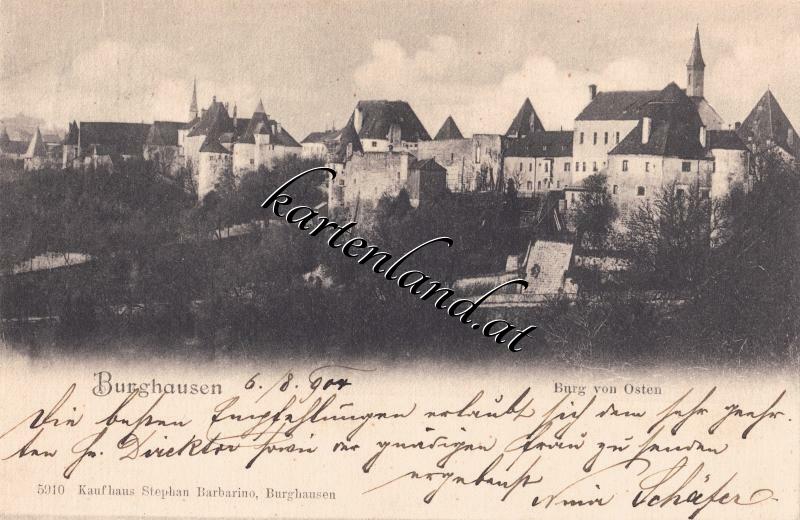 kartenland.at
Burghausen 6. 8. 904
Burg von Osten
Die besten Empfehlungen erlaubt sich dem sehr geehr-
ten H. Direktor sowie der gnädigen Frau zu senden
ergebenst
Schäfer
5910 Kaufhaus Stephan Barbarino, Burghausen